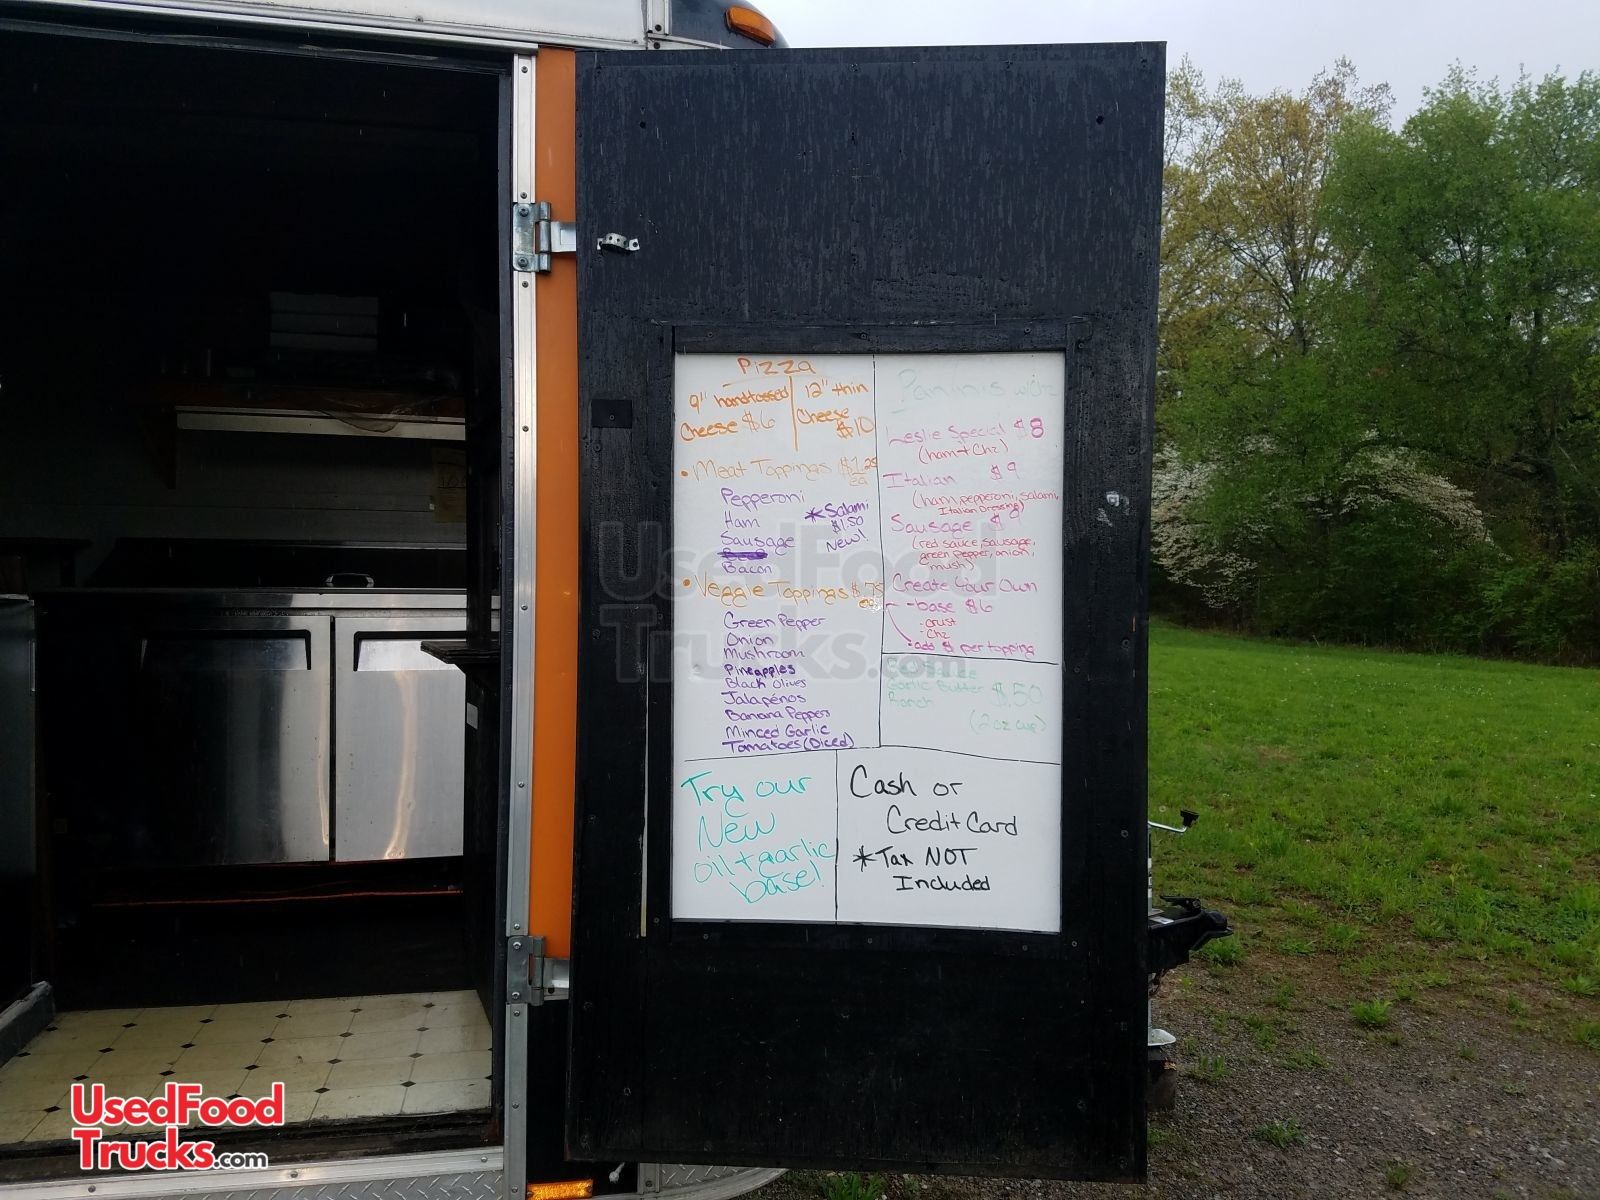 Pizza
9" handtossed
Cheese $6
12" thin
Cheese
$10
• Meat Toppings $1.25
ea
Pepperoni
Ham
Sausage
Bacon
* Salami
$1.50
New!
• Veggie Toppings $.75
ea
Green Pepper
Onion
Mushroom
Pineapples
Black Olives
Jalapenos
Banana Peppers
Minced Garlic
Tomatoes (Diced)
Paninis
Leslie Special $8
(ham + Chz)
Italian $9
(ham, pepperoni, salami,
Italian Dressing)
Sausage $9
(red sauce, sausage,
green pepper, onion,
mush)
Create Your Own
- base $6
- crust
- Chz
• add $1 per topping
Garlic Butter $.50
Ranch
(2 oz cup)
Try our
New
oil + garlic
base!
Cash or
Credit Card
* Tax NOT
Included
UsedFood
Trucks.com
UsedFood
Trucks.com